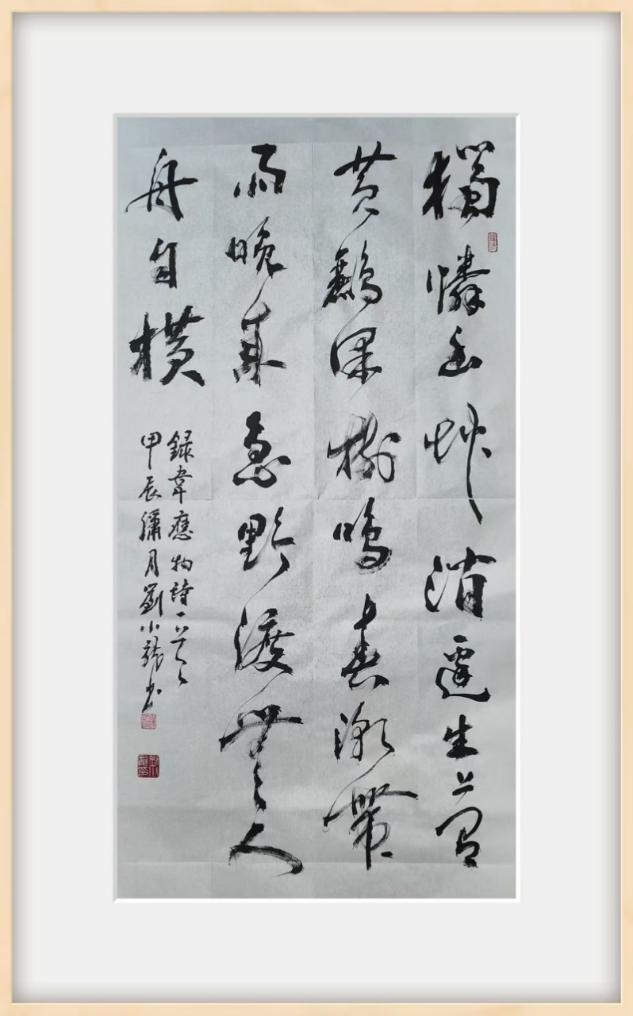 獨憐幽艸澗邊生上有
黃鸝深樹鳴春潮帶
雨晚来急野渡無人
舟自橫
録韋應物詩一首
甲辰月劉小書